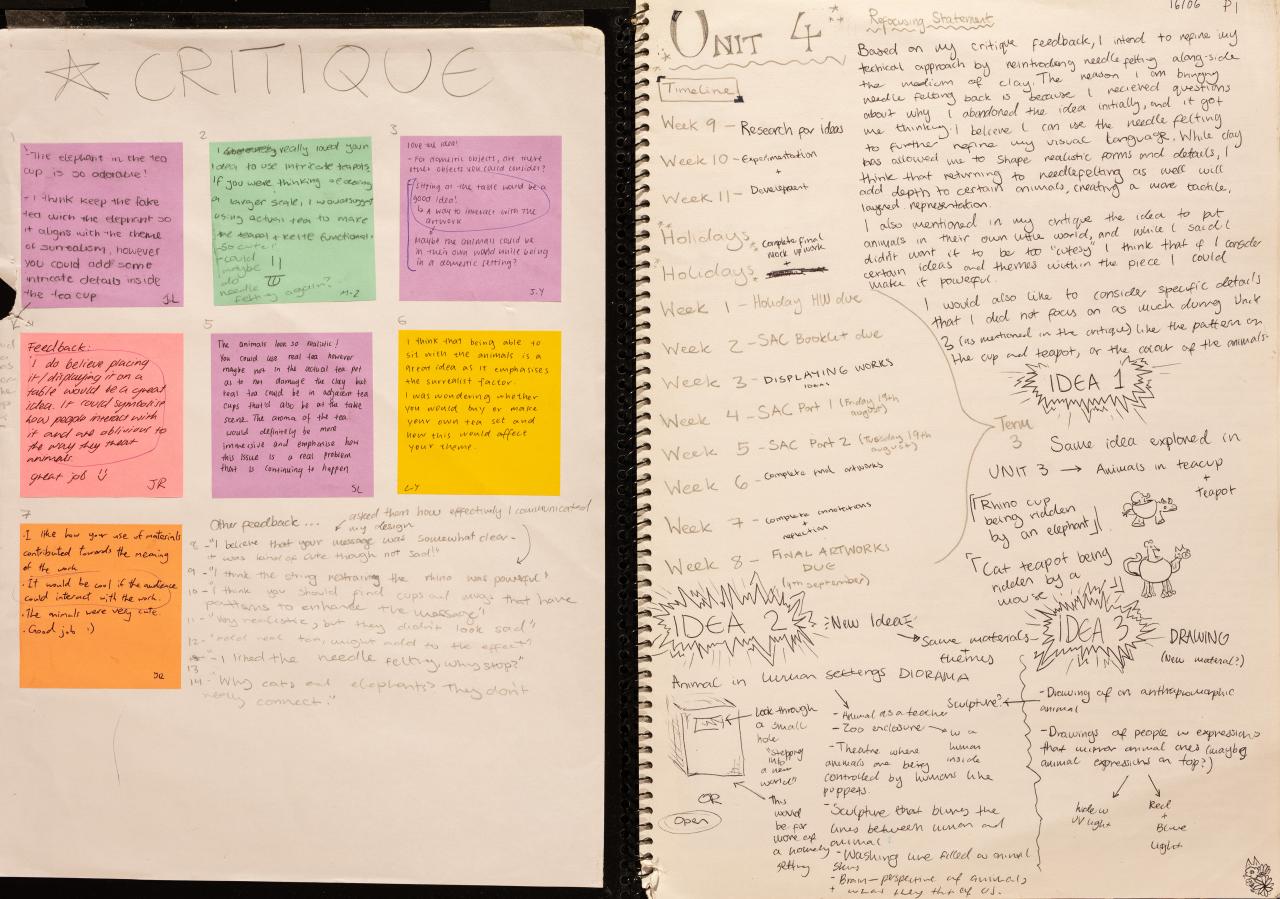 CRITIQUE
1
- The elephant in the tea
cup is so adorable!
- I think keep the fake
tea with the elephant so
it aligns with the theme
of surrealism, however
you could add some
intricate details inside
the tea cup
JL
2
I really loved your
idea to use intricate teapots.
If you were thinking of doing
a larger scale, I would suggest
using actual tea to make
the teapot + kettle functional.
- so cute!
could
maybe
do
needle
felting again?
M-Z
3
Love the idea!
- For domestic objects, are there
other objects you could consider?
Sitting at the table would be a
good idea!
↳ A way to interact with the
artwork
Maybe the animals could be
in their own world while being
in a domestic setting?
J.Y
4
Feedback:
I do believe placing
it/displaying it on a
table would be a great
idea. It could symbolise
how people interact with
it and are oblivious to
the way they threat
animals.
great job
JR
5
The animals look so realistic!
You could use real tea however
maybe not in the actual tea pot
as to not damage the clay but
real tea could be in adjacent tea
cups that'd also be at the table
scene. The aroma of the tea
would definitely be more
immersive and emphasise how
this issue is a real problem
that is continuing to happen
SL
6
I think that being able to
sit with the animals is a
great idea as it emphasises
the surrealist factor.
I was wondering whether
you would buy or make
your own tea set and
how this would affect
your theme.
L-Y
7
- I like how your use of materials
contributed towards the meaning
of the work
- It would be cool if the audience
could interact with the work.
- The animals were very cute.
- Good job :)
JR
Other feedback...
asked them how effectively I communicated
my design
8 - "I believe that your message was somewhat clear -
it was kind of cute though not sad"
9 - "I think the string restraining the rhino was powerful"
10 - "I think you should find cups and mugs that have
patterns to enhance the message"
11 - "Very realistic, but they didn't look sad"
12 - "need real tea, might add to the effect"
13 - "I liked the needle felting, why stop?"
14 - "Why cats and elephants? They don't
really connect."
16/06 P1
UNIT 4
Timeline
Week 9 - Research for ideas
Week 10 - Experimentation
+
Week 11 - Development
Holidays
Complete final
mock up work
+
Holidays
Week 1 - Holiday HW due
Week 2 - SAC Booklet due
Week 3 - DISPLAYING WORKS
ideas
Week 4 - SAC Part 1 (Friday 19th
august)
Week 5 - SAC Part 2 (Tuesday 19th
august)
Week 6 - complete final artworks
Week 7 - complete annotations
+
reflection
Week 8 - FINAL ARTWORKS
DUE
(4th september)
Term
3
Refocusing Statement
Based on my critique feedback, I intend to refine my
techical approach by reintroducing needle felting along-side
the medium of clay. The reason I am bringing
needle felting back is because I recieved questions
about why I abandoned the idea initially, and it got
me thinking. I believe I can use the needle felting
to further refine my visual language. While clay
has allowed me to shape realistic forms and details, I
think that returning to needlefelting as well will
add depth to certain animals, creating a more tactile,
layered representation.
I also mentioned in my critique the idea to put
animals in their own little world, and while I said I
didn't want it to be too "cutesy" I think that if I consider
certain ideas and themes within the piece I could
make it powerful.
I would also like to consider specific details
that I did not focus on as much during Unit
3 (as mentioned in the critique) like the pattern on
the cup and teapot, or the colour of the animals.
IDEA 1
Same idea explored in
UNIT 3 → Animals in teacup
+
teapot
Rhino cup
being ridden
by an elephant
Cat teapot being
ridden by a
mouse
IDEA 2
New Idea
Same materials
+
themes
Animal in human settings DIORAMA
Look through
a small
hole
"stepping
into
a new
world"
OR
Open
This
would
be for
more of
a homely
setting
- Animal as a teacher
- Zoo enclosure
w a
human
inside
Sculpture?
- Theatre where
animals are being
controlled by humans like
puppets.
- Sculpture that blurs the
lines between human and
animal
- Washing line filled w animal
skins
- Brain - perspective of animals,
+ what they think of us.
IDEA 3
DRAWING
(New material?)
- Drawing of an anthropomorphic
animal
- Drawings of people w expressions
that mirror animal ones (maybe
animal expressions on top?)
hide w
UV light
Red
+
Blue
light